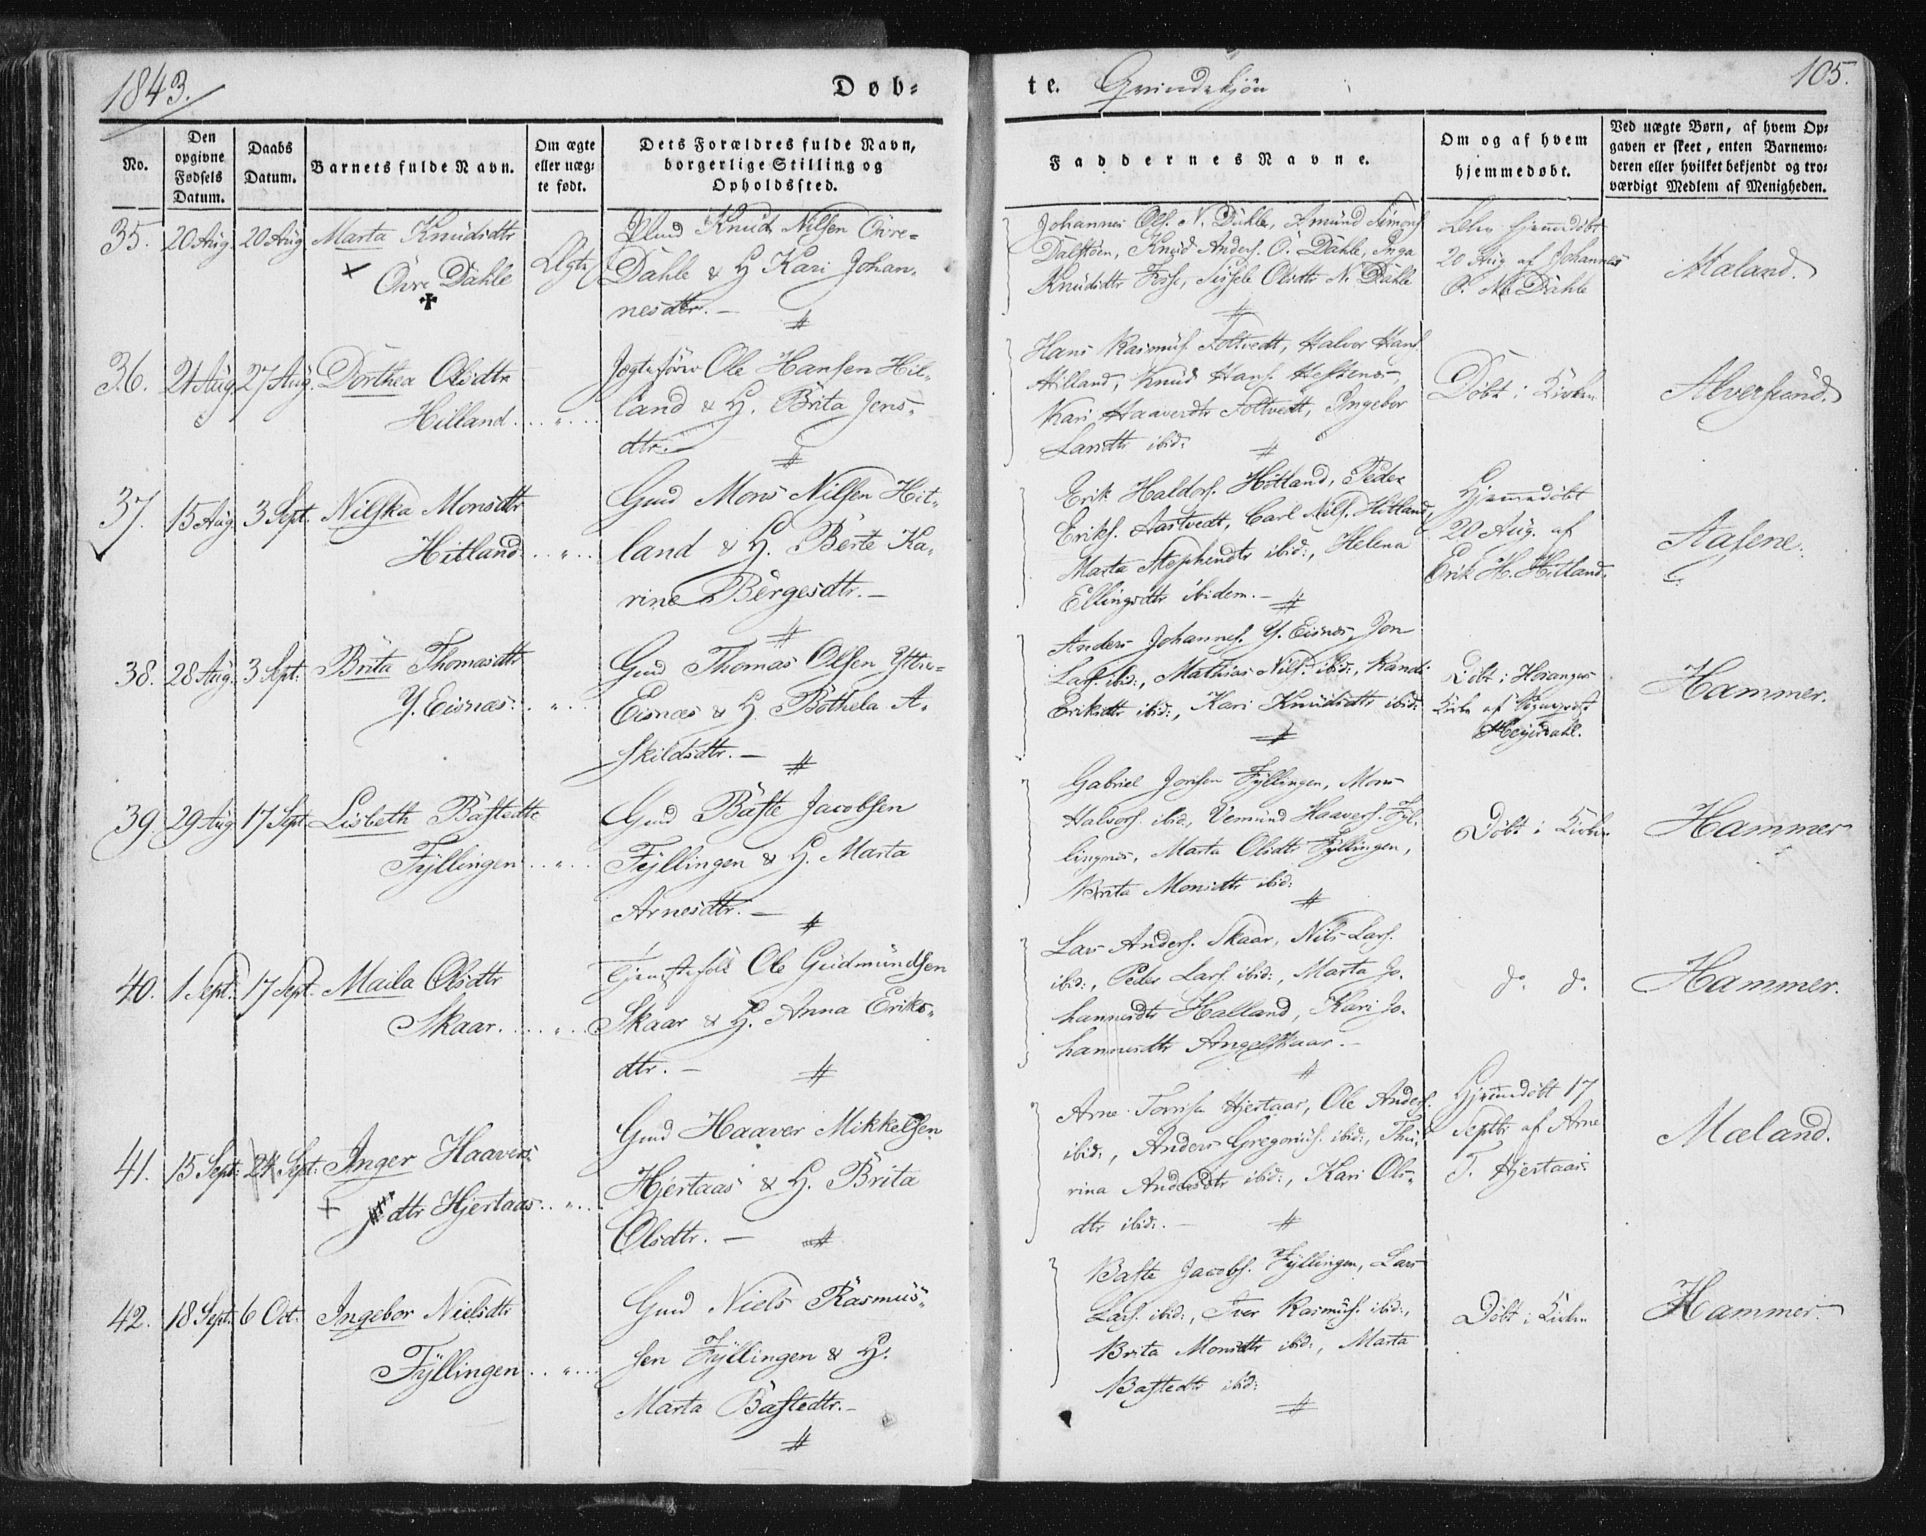 1843.
Døb-
te. Qvindekjön
105.
No.
Den opgivne Fødsels Datum.
Daabs Datum.
Barnets fulde Navn.
Om ægte eller uæg-te født.
Dets Forældres fulde Navn, borgerlige Stilling og Opholdssted.
Faddernes Navne.
Om og af hvem hjemmedøbt.
Ved uægte Børn, af hvem Op-gaven er skeet, enten Barnemo-deren eller hvilket bekjendt og tro-værdigt Medlem af Menigheden.
35. 20 Aug. 20 Aug. Marta Knudsdtr
Övre Dahle
Ægte
Knud Nilsen Övre-
Dahle & H. Kari Johan-
nesdtr. —
Johannes Ols. N. Dahle, Amund Simons.
Dalstöen, Knud Anders. Ö. Dahle, Inga
Knudsdtr Fesse, Sissele Olsdtr N. Dahle
hjemmedöbt
20 Aug af Johannes
O. N. Dahle
Mæland.
36. 21 Aug. 27 Aug. Dorthea Olsdtr
Hilland . . „ . .
Jegteförer Ole Hansen Hil-
land & H. Brita Jens-
dtr. —
Hans Rasmus. Toftvedt, Halvor Hans.
Hilland, Knud Hans. Heftenes,
Kari Haaversdtr Toftvedt, Ingebor
Larsdtr ibid:
Döbt i Kirken
Alversund.
37. 15 Aug. 3 Sept. Nilska Monsdtr
Hitland . . „ . .
Gmd Mons Nilsen Hit-
land & H. Berte Ka-
rine Börgesdtr. —
Erik Haldors. Hitland, Peder
Eriks. Aastvedt, Carl Nils. Hitland,
Marta Stephensdtr ibid:, Helena
Ellingsdtr ibidem. —
Hjemmedöbt
20 Aug. af
Erik H. Hitland.
Aasene.
38. 28 Aug. 3 Sept. Brita Thomasdtr
Y. Eisnæs . . „ . .
Gmd Thomas Olsen Yttre-
Eisnæs & H. Bothela A-
skildsdtr. —
Anders Johannes. Y. Eisnæs, Jon
Lars. ibid:, Mathias Nils. ibid:, Randi
Eriksdtr ibid:, Kari Knudsdtr ibid:
Döbt i Hosanger
Kirke af Sognepræst
Heyerdahl.
Hammer.
39. 29 Aug 17 Sept. Lisbeth Bastedtr
Fyllingen . . „ . .
Gmd Baste Jacobsen
Fyllingen & H. Marta
Arnesdtr. —
Gabriel Jonsen Fyllingen, Mons
Halvors. ibid:, Vemund Haavers. Fyl-
lingnes, Marta Olsdtr Fyllingen,
Brita Monsdtr ibid:
Döbt i Kirken
Hammer
40. 1 Sept. 17 Sept. Marta Olsdtr
Skaar. . . „ . .
Tjenestefolk Ole Gudmundsen
Skaar & H. Anna Eriks-
dtr. —
Lars Anders. Skaar, Nils Lars.
ibid:, Peder Lars. ibid:, Marta Jo-
hannesdtr Halland, Kari Jo-
hannesdtr Angelskaar. —
do do
Hammer.
41. 15 Sept. 24 Sept. Inger Haavers-
dtr Hjertaas . . „ . .
Gmd Haaver Mikkelsen
Hjertaas & H. Brita
Olsdtr. —
Arne Hjertaas, Ole Anders.
ibid:, Anders Gregorius. ibid:, Thu-
rina Andersdtr ibid:, Kari Ols-
dtr ibid:. —
Hjemmedöbt 17
Septbr af Arne
T. Hjertaas.
Mæland.
42. 18 Sept. 6 Oct. Ingebor Nielsdtr
Fyllingen . . „ . .
Gmd Niels Rasmus-
sen Fyllingen & H.
Marta Bastedtr. —
Baste Jacobs. Fyllingen, Lars
Lars. ibid:, Iver Rasmus. ibid:,
Brita Monsdtr ibid:, Marta
Bastedtr ibid:
Döbt i Kirken
Hammer.